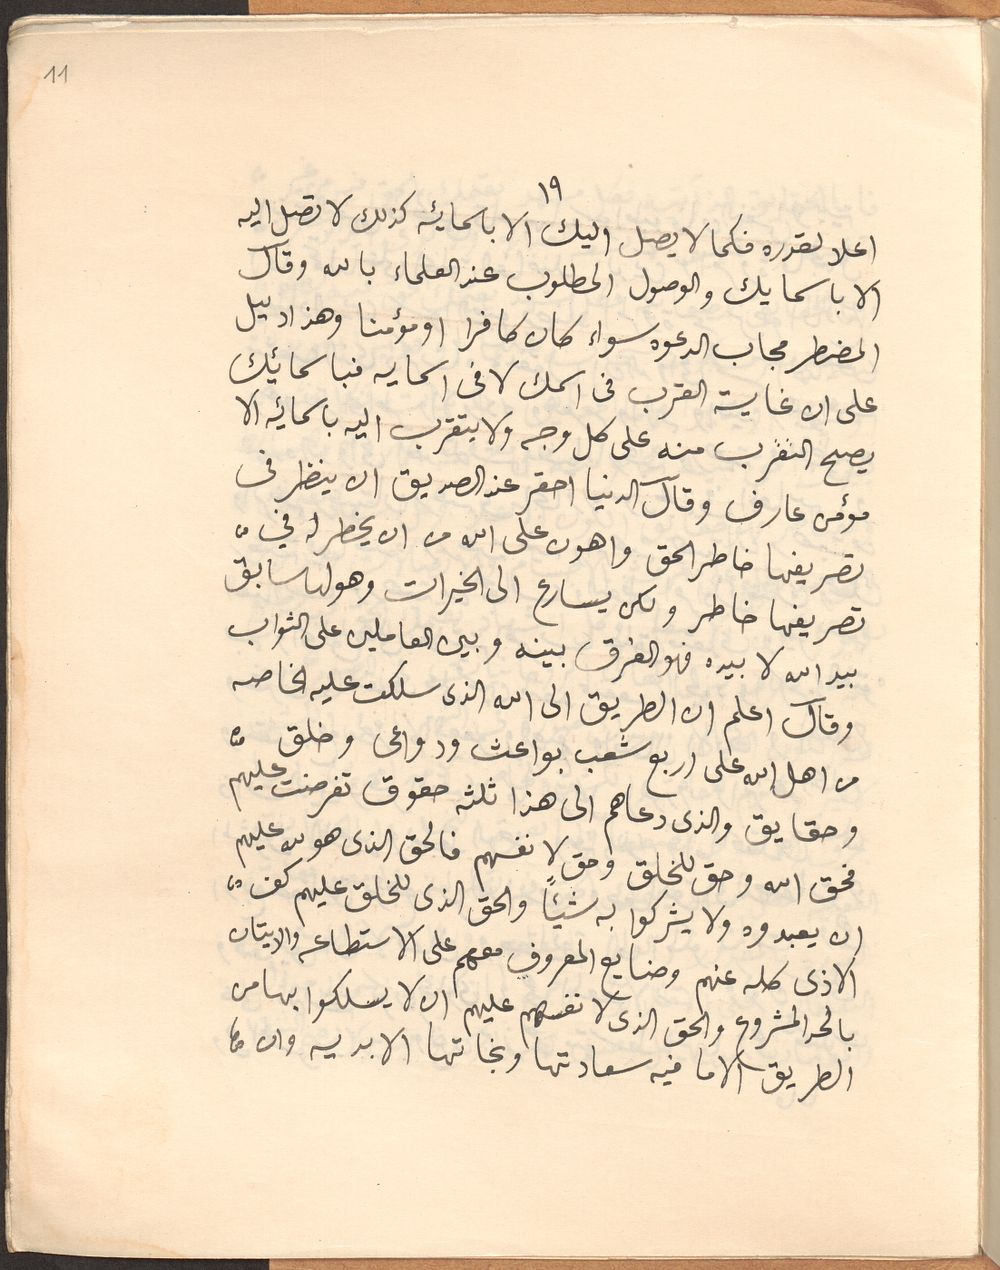 11
١٩
اعلا لقدره فكما لا يصل اليك الا باسمايئه كذلك لا تصل اليه
الا باسمايك والوصول المطلوب عند العلماء بالله وقال
المضطر مجاب الدعوه سواء كان كافرا او مؤمنا وهذا دليل
على ان غاية القرب فى اسمك لا فى اسمايه فباسمائيك
يصح التقرب منه على كل وجه ولا يتقرب اليه باسمائيه الا
مؤمن عارف وقال الدنيا احقر عند الصديق ان ينظر فى
تصريفها خاطر الحق واهون على الله من ان يخطر له في
تصريفها خاطر ولكن يسارع الى الخيرات وهو لها سابق
بيد الله لا بيده فهو الفرق بينه وبين العاملين على الثواب
وقال اعلم ان الطريق الى الله الذى سلكت عليه الخاصه
من اهل الله على اربع شعب بواعث ودواعى وخلق
وحقايق والذى دعاهم الى هذا ثلثه حقوق تفرضت عليهم
فحق الله وحق للخلق وحق لا نفسهم فالحق الذى هو لله عليهم
ان يعبدوه ولا يشركوا به شيئًا والحق الذى للخلق عليهم كف
الاذى كله عنهم وصنايع المعروف معهم على الاستطاعه والايتان
بالحد المشروع والحق الذى لا نفسهم عليهم ان لا يسلكوا بها من
الطريق الا ما فيه سعادتها ونجاتها الابديه وان